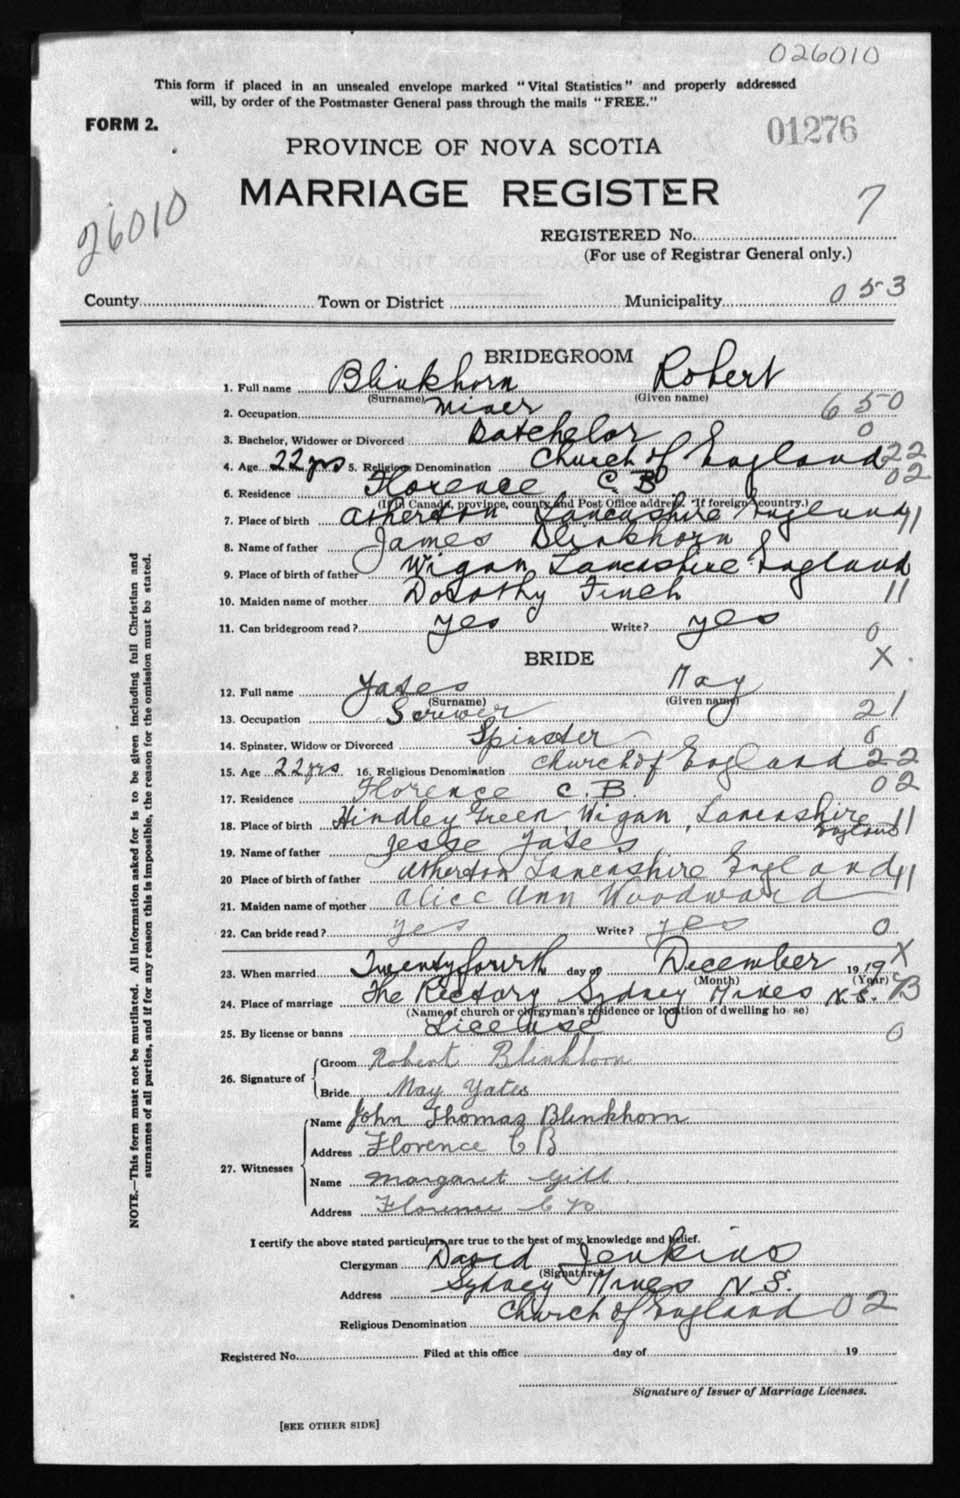 026010
This form if placed in an unsealed envelope marked "Vital Statistics" and properly addressed
will, by order of the Postmaster General pass through the mails "FREE."
FORM 2.
01276
PROVINCE OF NOVA SCOTIA
MARRIAGE REGISTER
26010
7
REGISTERED No.
(For use of Registrar General only.)
County Town or District Municipality 053
BRIDEGROOM
1. Full name Blinkhorn Robert
(Surname) (Given name)
2. Occupation Miner 650
3. Bachelor, Widower or Divorced Batchelor 0
4. Age 22 yrs 5. Religious Denomination Church of England 22
6. Residence Florence C B 02
(If in Canada, province, county and Post Office address. If foreign country.)
7. Place of birth Atherton Lancashire England 11
8. Name of father James Blinkhorn
9. Place of birth of father Wigan Lancashire England
10. Maiden name of mother Dorothy Finch 11
11. Can bridegroom read? yes Write? yes 0
BRIDE X
12. Full name Yates May
(Surname) (Given name)
13. Occupation 21
14. Spinster, Widow or Divorced Spinster 0
15. Age 22 yrs 16. Religious Denomination Church of England 22
17. Residence Florence C.B. 02
18. Place of birth Hindley Green Wigan, Lancashire England 11
19. Name of father Jesse Yates
20 Place of birth of father Atherton Lancashire England 11
21. Maiden name of mother Alice Ann Woodward
22. Can bride read? yes Write? yes 0
23. When married Twenty fourth day of December 1919 X
(Month) (Year)
24. Place of marriage The Rectory Sydney Mines N.S. 73
(Name of church or clergyman's residence or location of dwelling house)
25. By license or banns License 0
26. Signature of
Groom Robert Blinkhorn
Bride May Yates
27. Witnesses
Name John Thomas Blinkhorn
Address Florence C B
Name Margaret Gill
Address Florence C B
I certify the above stated particulars are true to the best of my knowledge and belief.
Clergyman David Jenkins
(Signature)
Address Sydney Mines N.S.
Religious Denomination Church of England 02
Registered No. Filed at this office day of 19
Signature of Issuer of Marriage Licenses.
[SEE OTHER SIDE]
NOTE.—This form must not be mutilated. All information asked for is to be given including full Christian and
surnames of all parties, and if for any reason this is impossible, the reason for the omission must be stated.